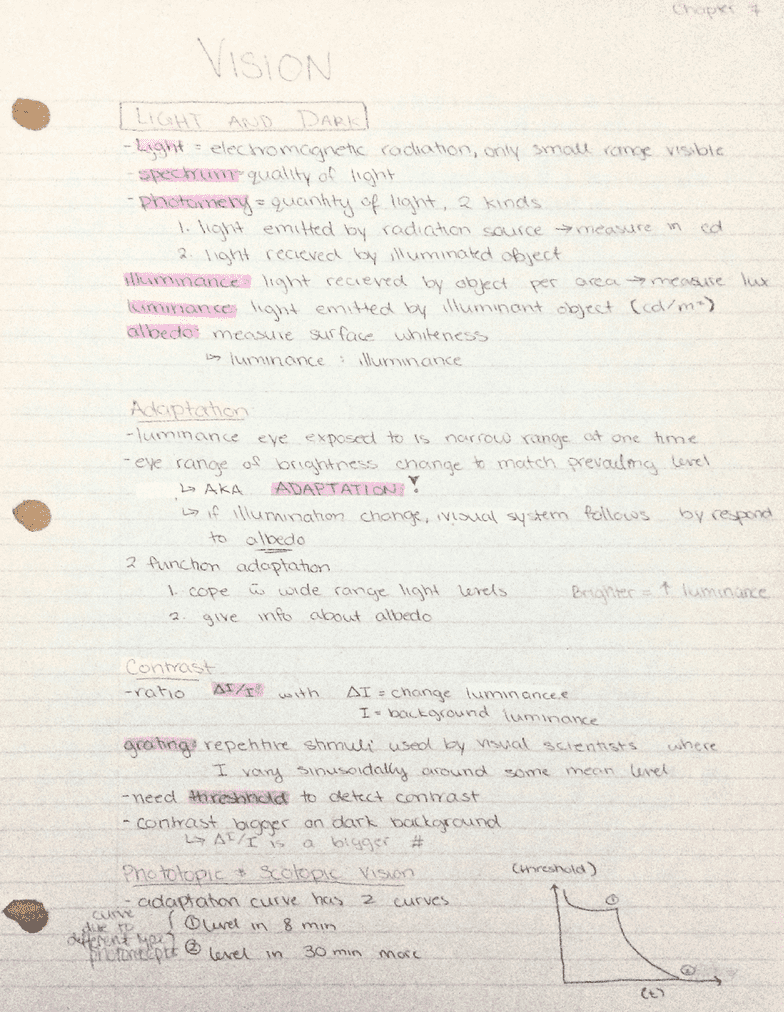 Chapter 7
VISION
LIGHT AND DARK
- Light = electromagnetic radiation, only small range visible
- spectrum = quality of light
- photometry = quantity of light, 2 kinds
1. light emitted by radiation source → measure in cd
2. light recieved by illuminated object
illuminance: light recieved by object per area → measure lux
luminance: light emitted by illuminant object (cd/m²)
albedo: measure surface whiteness
↳ luminance : illuminance
Adaptation
- luminance eye exposed to is narrow range at one time
- eye range of brightness change to match prevading level
↳ AKA ADAPTATION!
↳ if illumination change, visual system follows by respond
to albedo
2 function adaptation
1. cope w̄ wide range light levels Brighter = ↑ luminance
2. give info about albedo
Contrast
- ratio ΔI/I with ΔI = change luminance
I = background luminance
grating: repetitive stimuli used by visual scientists where
I vary sinusoidally around some mean level
- need threshhold to detect contrast
- contrast bigger on dark background
↳ ΔI/I is a bigger #
Phototopic + Scotopic Vision (threshold)
- adaptation curve has 2 curves
curve due to different type photorecepts
① level in 8 min
② level in 30 min more
①
②
(t)